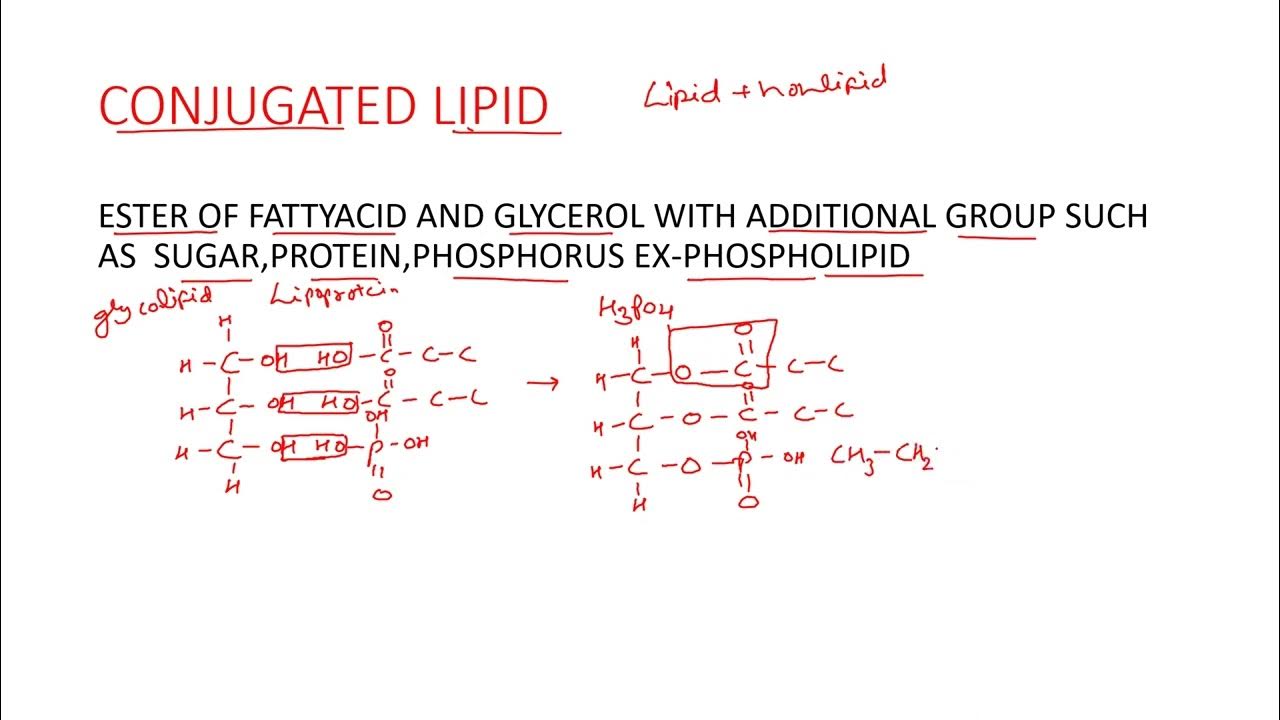 CONJUGATED LIPID
Lipid + nonlipid
ESTER OF FATTYACID AND GLYCEROL WITH ADDITIONAL GROUP SUCH
AS SUGAR,PROTEIN,PHOSPHORUS EX-PHOSPHOLIPID
glycolipid Lipoprotein
H3PO4
H
H
O
O
H - C - OH HO - C - C - C
H - C - O - C - C - C
O
O
H - C - OH HO - C - C - C
→
H - C - O - C - C - C
OH
OH
H - C - OH HO - P - OH
H - C - O - P - OH CH3 - CH2
H
O
H
O